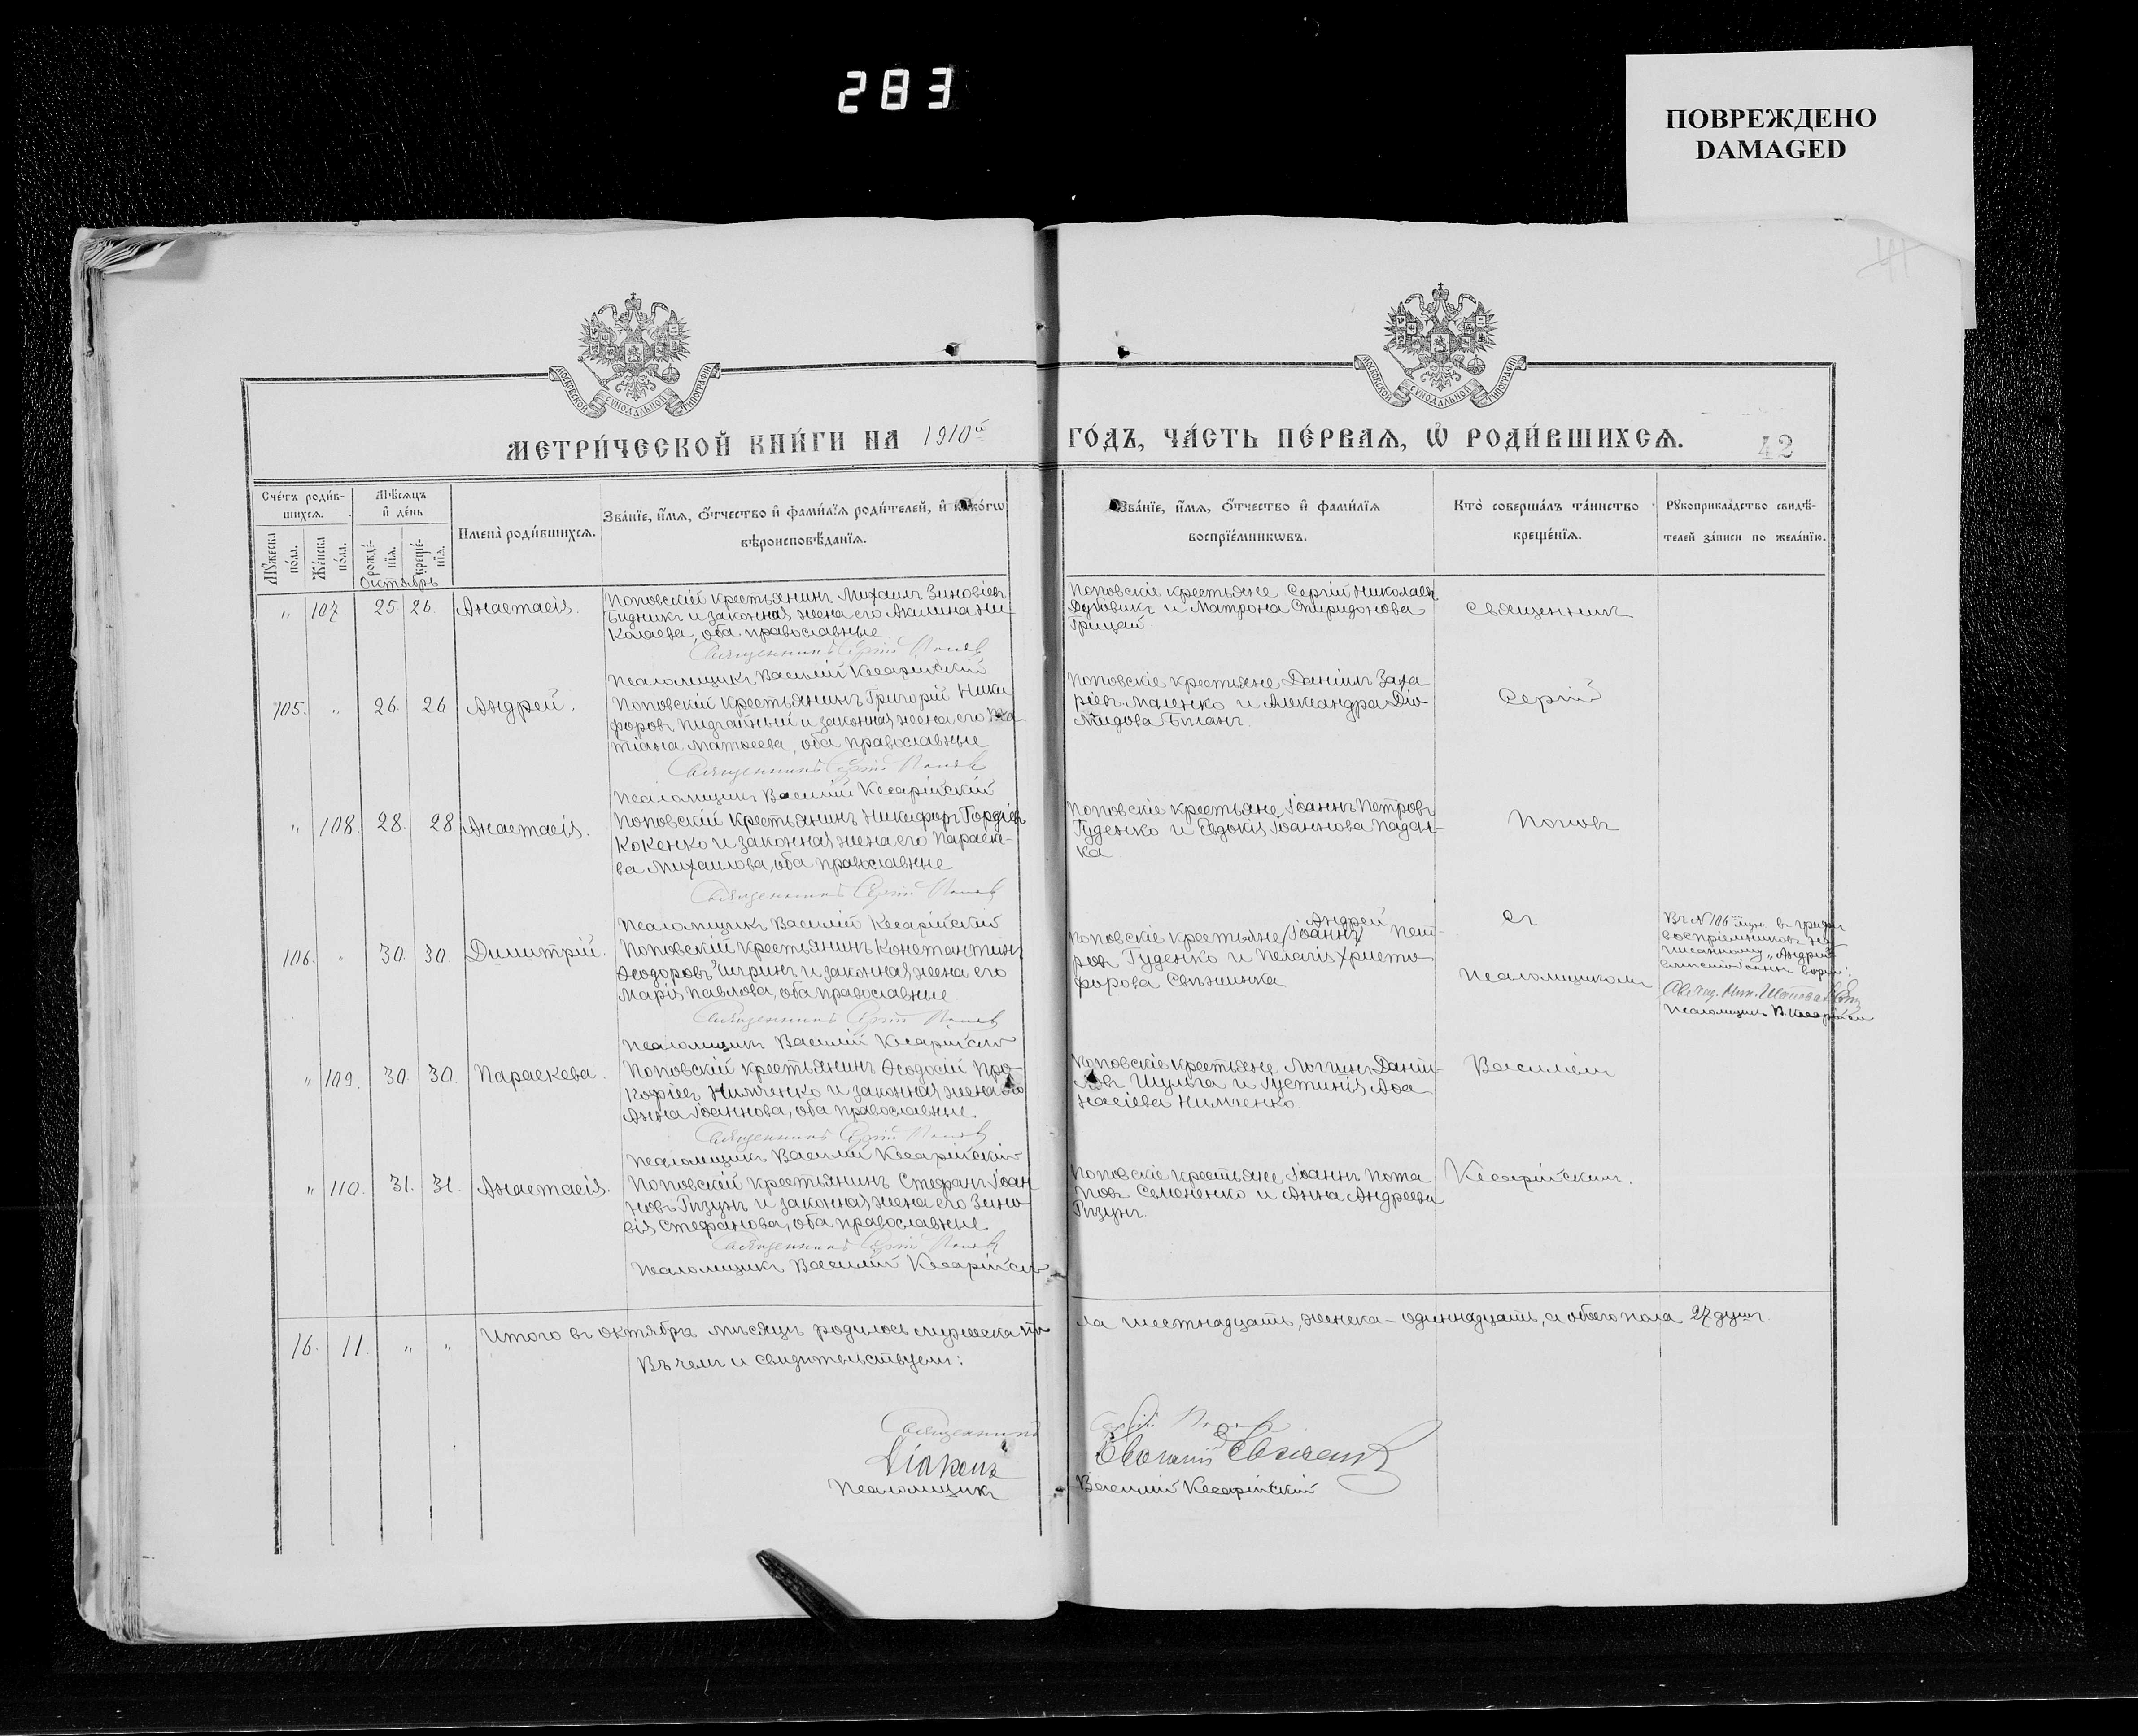 283
ПОВРЕЖДЕНО
DAMAGED
41
МОСКОВСКОЙ СѴНОДАЛЬНОЙ ТИПОГРАФІИ
МОСКОВСКОЙ СѴНОДАЛЬНОЙ ТИПОГРАФІИ
МЕТРИ́ЧЕСКОЙ КНИ́ГИ НА 1910й ГО́ДЪ, ЧА́СТЬ ПЕ́РВАѦ, Ѡ҆ РОДИ́ВШИХСѦ.
42
Сче́тъ роди́в-
шихсѧ.
Мѣ́сѧцъ
и҆ де́нь
Мꙋ́жеска по́ла.
Же́нска по́ла.
рожде́-нїѧ.
креще́-нїѧ.
И҆мена̀ роди́вшихсѧ.
Зва́нїе, и҆́мѧ, ѻ҆́тчество и҆ фами́лїѧ роди́телей, и҆ како́гѡ
вѣроисповѣ́данїѧ.
Зва́нїе, и҆́мѧ, ѻ҆́тчество и҆ фами́лїѧ
воспрїе́мникѡвъ.
Кто̀ соверша́лъ та́инство
креще́нїѧ.
Рꙋкоприкла́дство свидѣ́-
телей за́писи по жела́нїю.
Октябрь
" 107 25. 26. Анастасія.
Поповскій крестьянинъ Михаилъ Зиновіевъ
Бидникъ и законная жена его Акилина Ни-
колаева, оба православные
Священникъ Сергій Поповъ
Псаломщикъ Василій Кесарійскій
Поповскіе крестьяне Сергій Николаевъ
Дубовикъ и Матрона Спиридонова
Грицай.
Священникъ
105. " 26. 26 Андрей.
Поповскій крестьянинъ Григорій Ники
форовъ Пидгайный и законная жена его Та-
тіана Матѳеева, оба православные
Священникъ Сергій Поповъ
Псаломщикъ Василій Кесарійскій
Поповскіе крестьяне Даніилъ Заха
ріевъ Маленко и Александра Діо
мидова Биланъ.
Сергій
" 108. 28. 28 Анастасія.
Поповскій крестьянинъ Никифоръ Гордіевъ
Кокенко и законная жена его Параске-
ва Михаилова, оба православные
Священникъ Сергій Поповъ
Псаломщикъ Василій Кесарійскій
Поповскіе крестьяне Іоаннъ Петровъ
Гуденко и Евдокія Іоаннова Падал-
ка.
Поповъ
106. " 30. 30. Димитрій.
Поповскій крестьянинъ Константинъ
Ѳеодоровъ Чигринъ и законная жена его
Марія Павлова, оба православные.
Священникъ Сергій Поповъ
Псаломщикъ Василій Кесарійскій
Андрей
Поповскіе крестьяне /Іоаннъ/ Пет-
ровъ Гуденко и Пелагія Христо
форова Свѣжинка
съ
Псаломщикомъ
Въ № 106 въ графѣ
воспріемниковъ на-
писанному "Андрей"
Псаломщикъ В. Кесарійскій
" 109. 30. 30. Параскева.
Поповскій крестьянинъ Ѳеодосій Про-
кофіевъ Нимченко и законная жена его
Анна Іоаннова, оба православные.
Священникъ Сергій Поповъ
Псаломщикъ Василій Кесарійскій
Поповскіе крестьяне Логгинъ Даніи-
ловъ Шульга и Іустинія Аѳа-
насіева Нимченко.
Василіемъ
" 110. 31. 31. Анастасія.
Поповскій крестьянинъ Стефанъ Іоан
новъ Ризунъ и законная жена его Зино-
вія Стефанова, оба православные.
Священникъ Сергій Поповъ
Псаломщикъ Василій Кесарійскій
Поповскіе крестьяне Іоаннъ Пота
повъ Семененко и Анна Андреева
Ризунъ.
Кесарійскимъ.
16. 11. " " Итого въ октябрѣ мѣсяцѣ родилось мужеска по ла шестнадцать, женска – одиннадцать, а обоего пола 27 душъ.
Въ чемъ и свидѣтельствуемъ:
Священникъ Сергій Поповъ
Діаконъ
Псаломщикъ Василій Кесарійскій